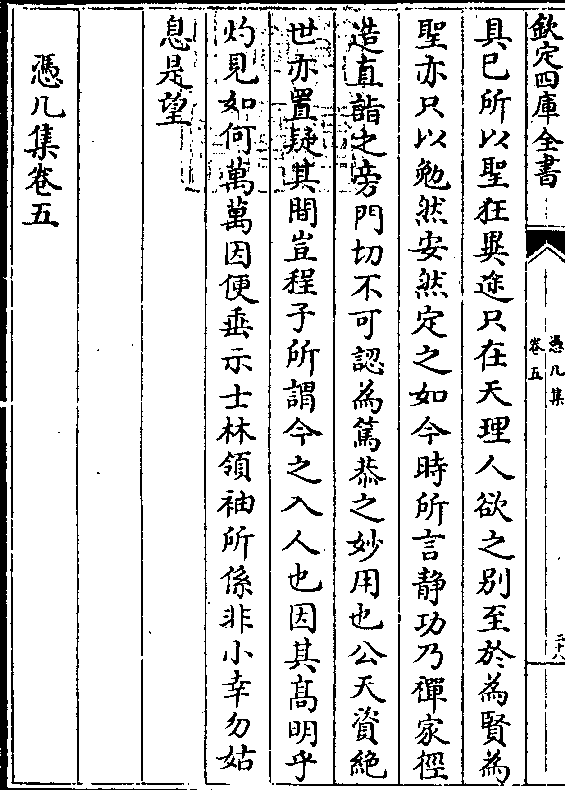 欽定四庫全書
憑几集
卷五
二十八
具已所以聖狂異途只在天理人欲之别至於為賢為
聖亦只以勉然安然定之如今時所言静功乃禪家徑
造直詣之旁門切不可認為篤恭之妙用也公天資絶
世亦置疑其間豈程子所謂今之入人也因其髙明乎
灼見如何萬萬因便垂示士林領袖所係非小幸勿姑
息是望
憑几集卷五